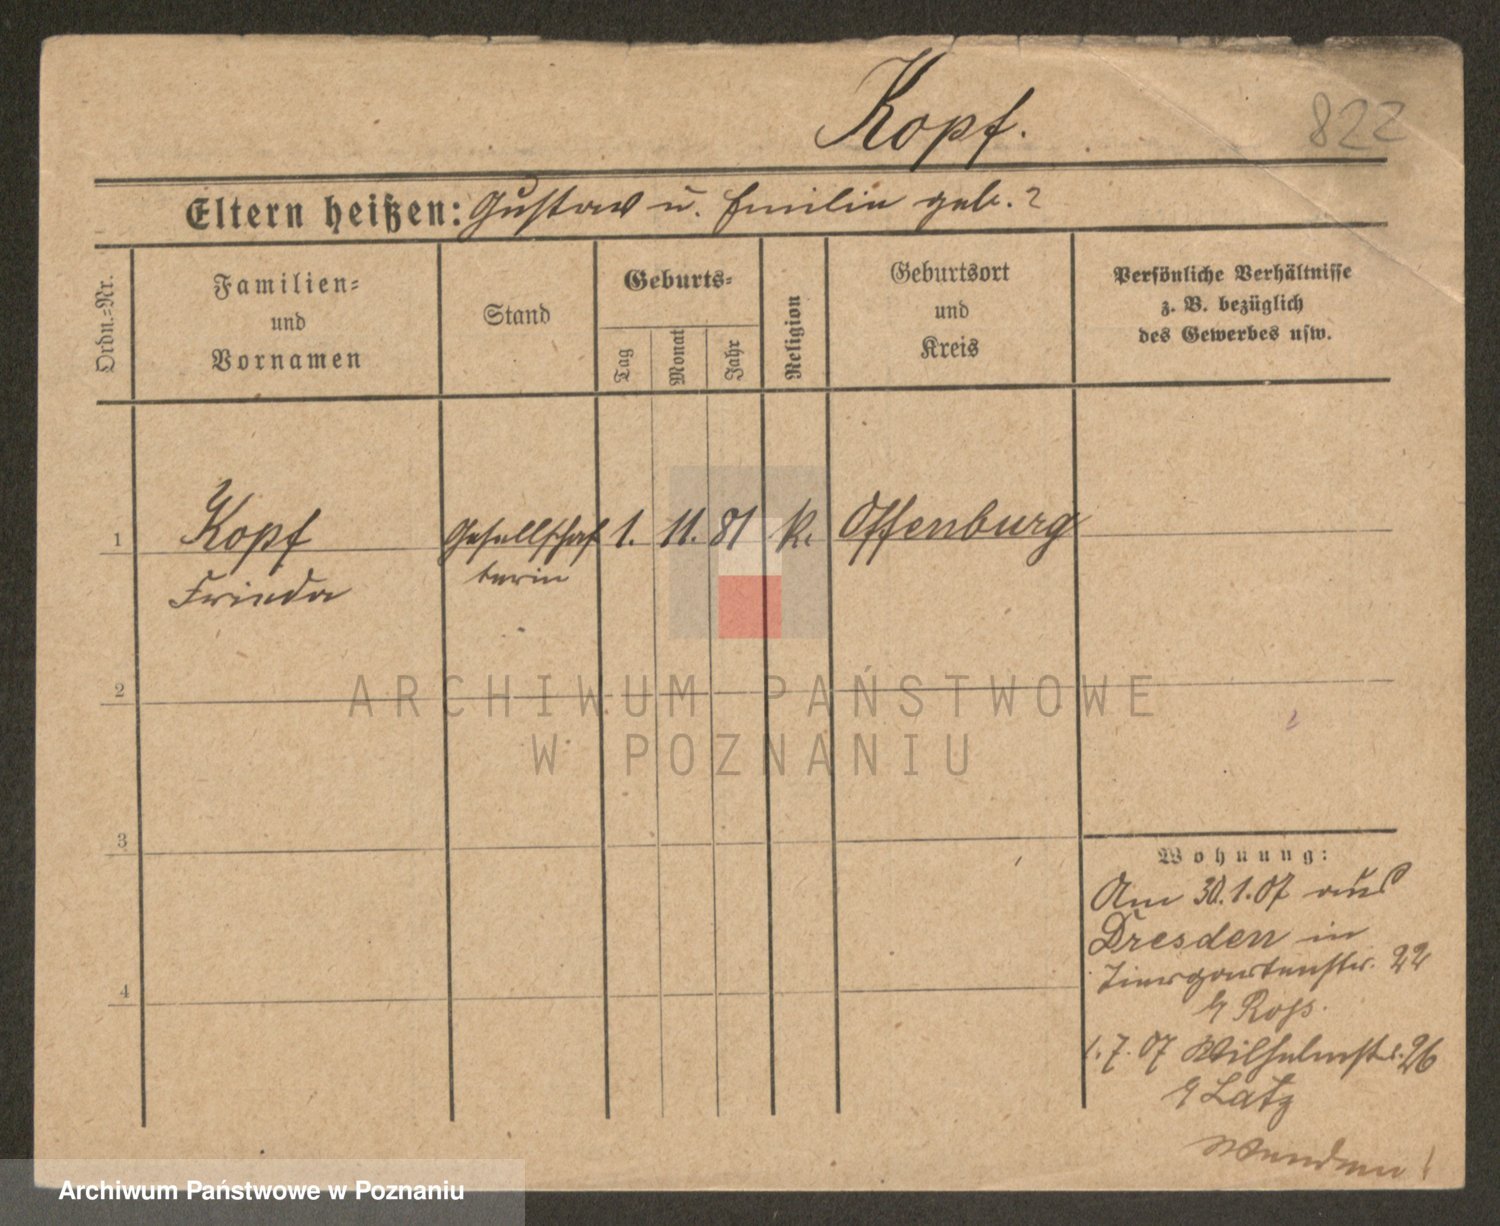 Kopf.
822
Eltern heißen: Gustav u. Emilie geb. ?
Ordn.-Nr.
Familien-
und
Vornamen
Stand
Geburts-
Tag
Monat
Jahr
Religion
Geburtsort
und
Kreis
Persönliche Verhältnisse
z. B. bezüglich
des Gewerbes usw.
1
Kopf
Gesellschaf
1.
11.
81
k.
Offenburg
Frieda
terin
2
ARCHIWUM PAŃSTWOWE
W POZNANIU
3
Wohnung:
Am 30.1.07 aus
Dresden in
Tiergartenstr. 22
4
b/ Ross.
1.7.07 Wilhelmstr. 26
b/ Latz
Wenden!
Archiwum Państwowe w Poznaniu